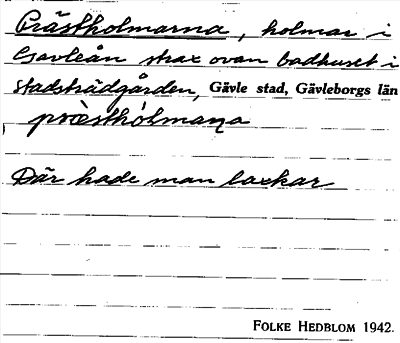 Prästholmarna, holmar i
Gavleån strax ovan badhuset i
stadsträdgården, Gävle stad, Gävleborgs län
præ̀sthòlmaṇa
Där hade man laxkar
FOLKE HEDBLOM 1942.